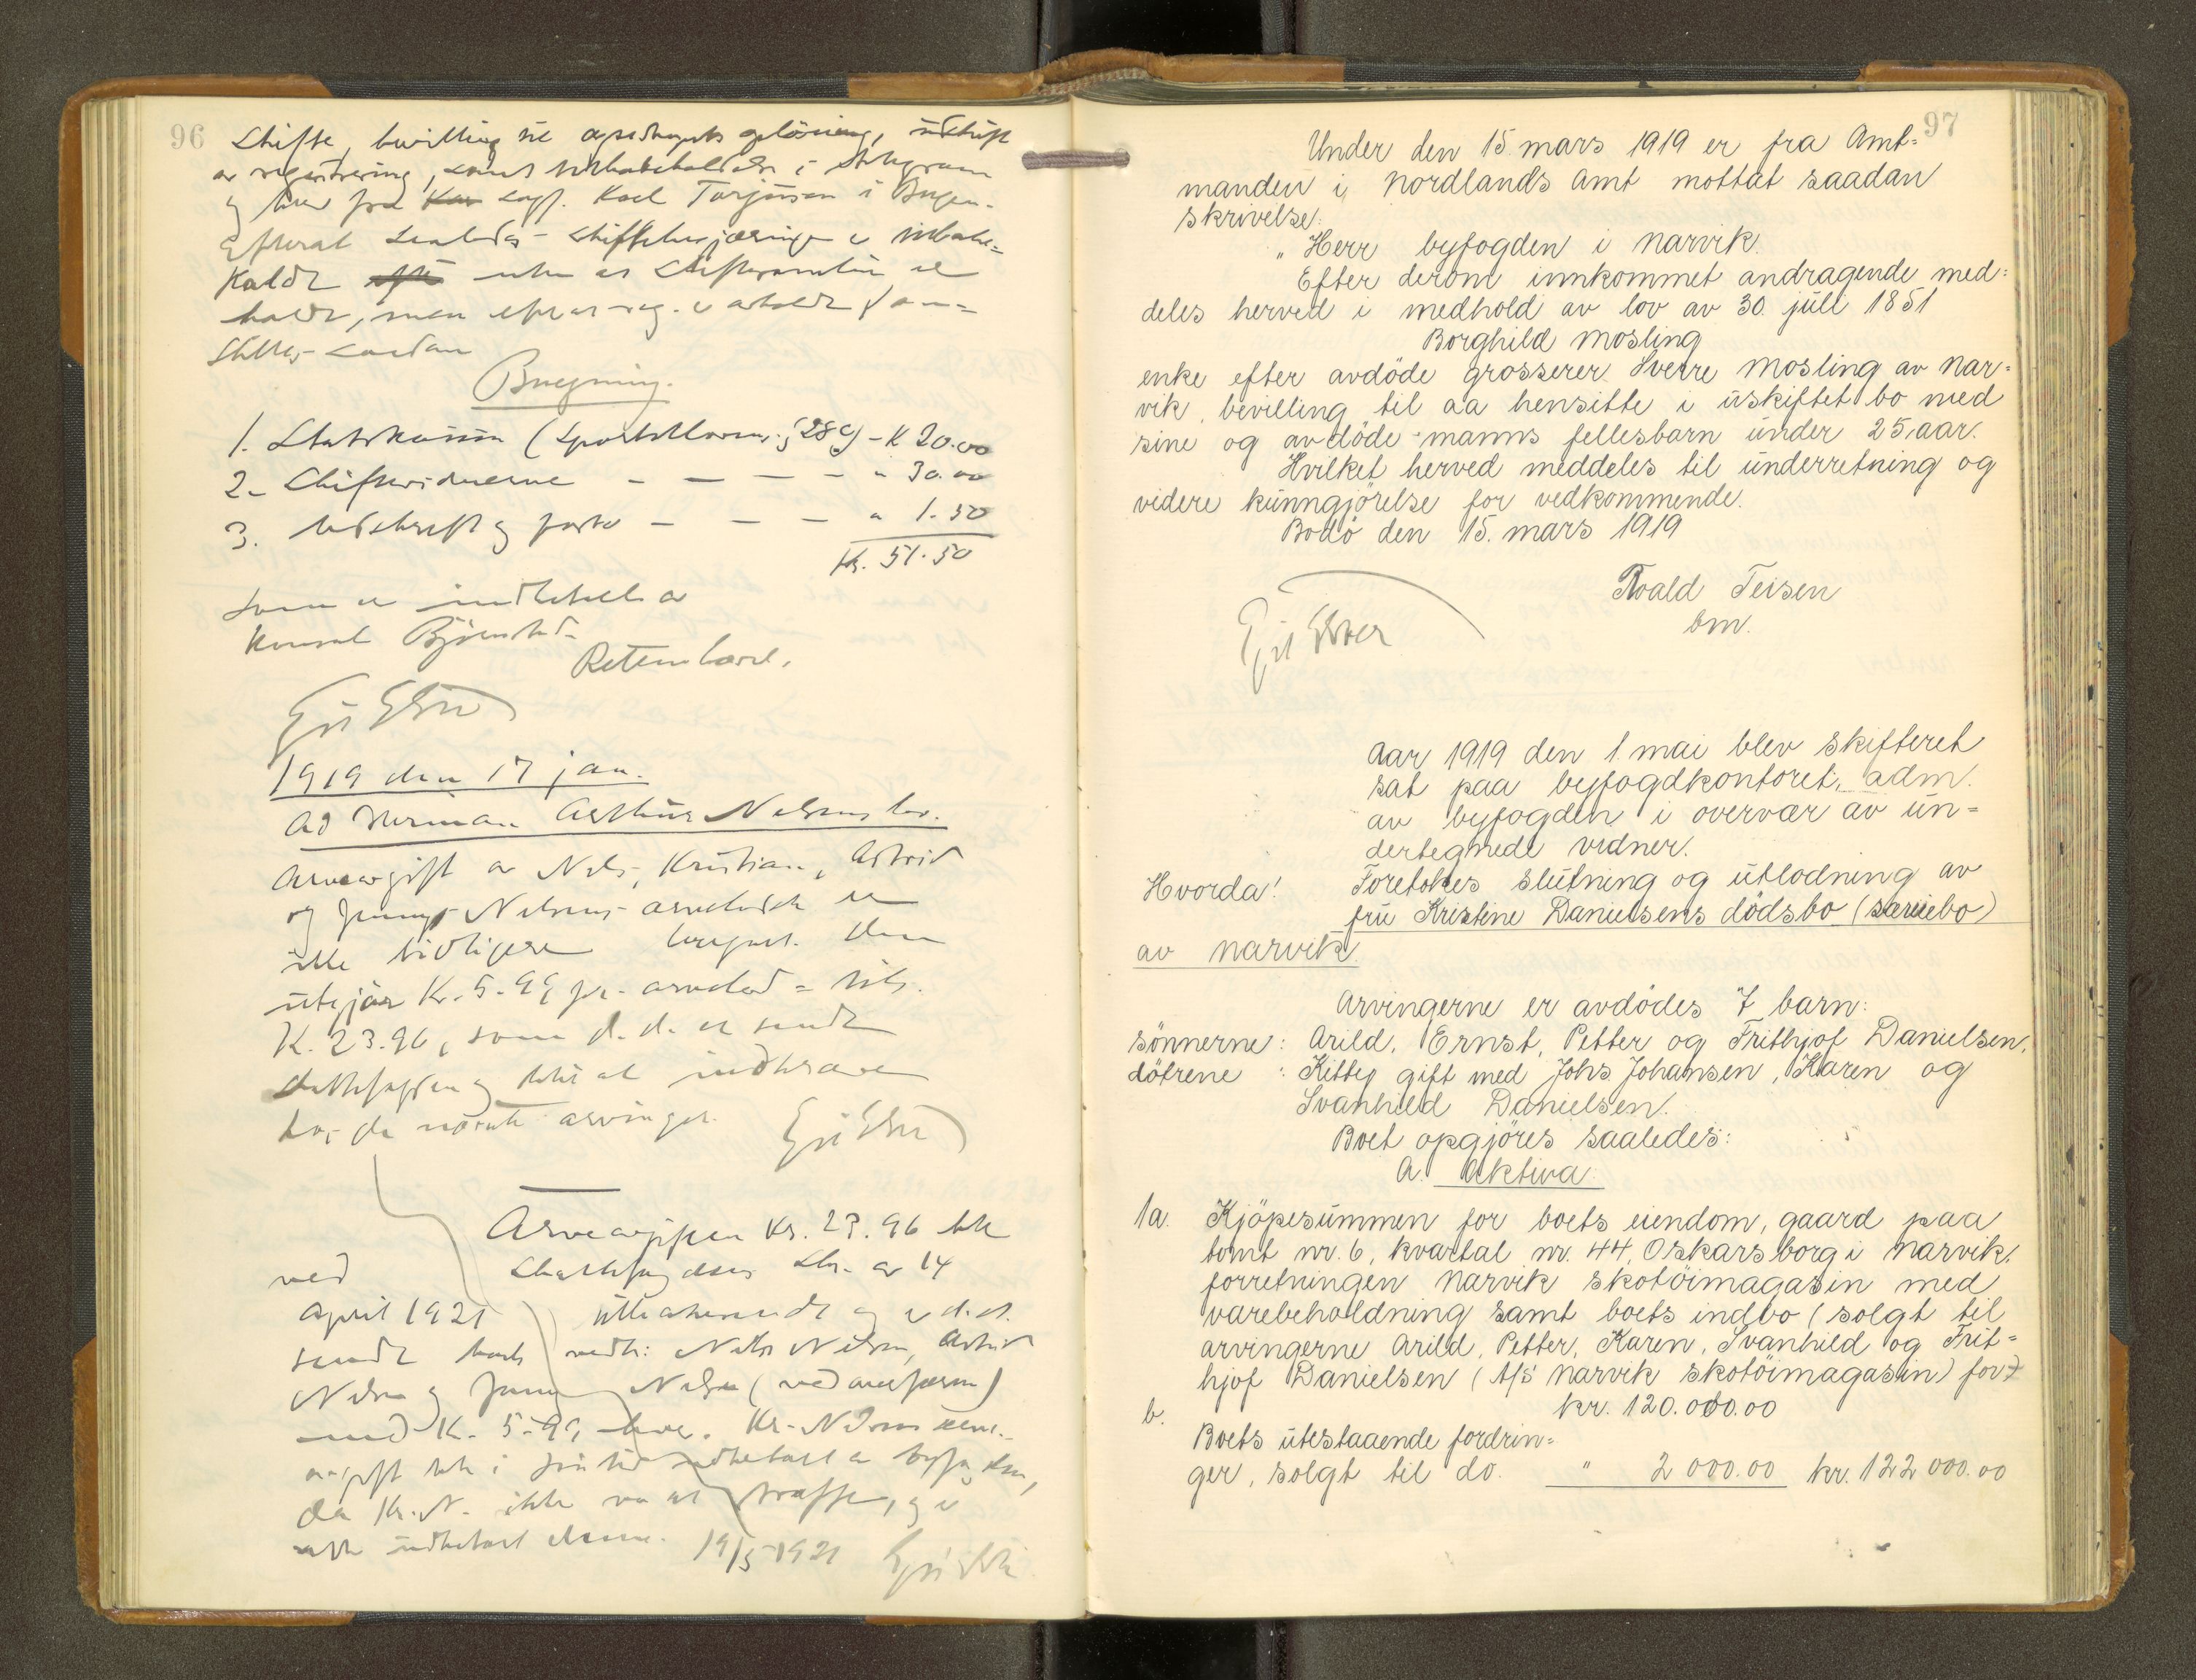 96
Skifte, bevilling til
av registrering, samt tilbakekaldelse i telegram
og brev fra Kar Karl Torjusen i
Efterat skiftebegjæringen er tilbake=
kaldt efter uten at skiftesamling er
holdt, men efter at reg. er avholdt
saadan
Beregning.
1. Statskassen (Sportelloven § 28 c) - K 20.00
2. Skiftevidnerne - - - - " 30.00
3. Utskrift og porto - - - " 1.50
Kr. 51.50
som er indbetalt av
konsul Bjørnstad.
1919 den 17 jan.
Ad Herman Arthur Nelsens bo.
Arveavgift av Nels, Kristian, Astrid
og Jennys Nelsens arvelodder er
ikke tidligere beregnet. Den
utgjør Kr. 5.99 pr. arvelod = tils.
K. 23.96, som d. d. er sendt
skattefogden og at indkræve
hos de nævnte arvinger.
Arveavgiften Kr. 23.96 blev
ved skattefogdens skr. av 14
april 1921 og er d.d.
sendt Nils Nelsen, Astrid
Nelsen og Jenny Nelsen
med K. 5.99 hver. Kr. Nelsens arve-
avgift blev i sin tid indbetalt av byfogden,
da Kr. N. ikke var at træffe, og er
indbetalt denne. 19/5 1921
97
Under den 15 mars 1919 er fra Amt=
manden i Nordlands Amt mottat saadan
skrivelse:
" Herr byfogden i Narvik.
Efter derom innkommet andragende med=
deles herved i medhold av lov av 30. juli 1851
Borghild Mosling
enke efter avdöde grosserer Sverre Mosling av Nar=
vik, bevilling til aa hensitte i uskiftet bo med
sine og avdöde manns fellesbarn under 25 aar.
Hvilket herved meddeles til underretning og
videre kunngjörelse for vedkommende.
Bodö den 15. mars 1919
Roald Teisen
bm.
Aar 1919 den 1 mai blev skifteret
sat paa byfogdkontoret, adm.
av byfogden i overvær av un=
dertegnede vidner.
Hvorda! Foretokes slutning og utlodning av
fru Kristine Danielsens dödsbo (særeiebo)
av Narvik.
Arvingerne er avdödes 7 barn:
sönnerne: Arild, Ernst, Petter og Frithjof Danielsen,
dötrene : Kitty gift med Johs Johansen, Karen og
Svanhild Danielsen.
Boet opgjöres saaledes:
A. Aktiva
1a. Kjöpesummen for boets eiendom, gaard paa
tomt nr. 6, kvartal nr. 44, Oskarsborg i Narvik,
forretningen Narvik skotöimagasin med
varebeholdning samt boets indbo (solgt til
arvingerne Arild, Petter, Karen, Svanhild og Frit=
hjof Danielsen (A/S Narvik skotöimagasin) for
kr. 120.000.00
b. Boets utestaaende fordrin=
ger, solgt til do. " 2 000.00 kr. 122 000.00